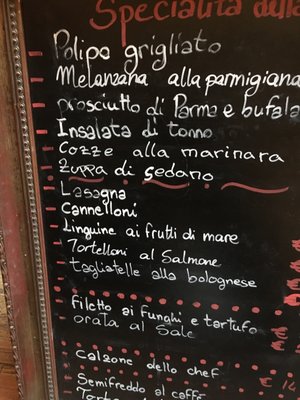 Specialità della
Polipo grigliato
Melanzana alla parmigiana
prosciutto di Parma e bufala
Insalata di tonno
Cozze alla marinara
Zuppa di sedano
Lasagna
Cannelloni
Linguine ai frutti di mare
Tortelloni al Salmone
tagliatelle alla bolognese
filetto ai funghi e tartufo
orata al Sale
Calzone dello chef
Semifreddo al caffè